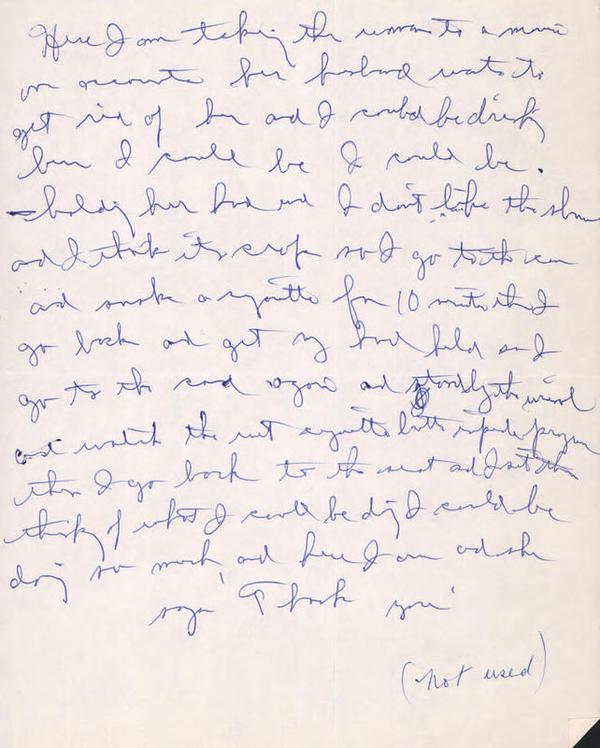 Here I am taking the woman to a movie
on account her husband wants to
get rid of her and I could be drinking
beer I could be I could be.
holding her hand and I don't like the show
and I think its crap so I go to the can
and smoke a cigarette for 10 minutes then I
go back and get my hand held and I
go to the can again and stand by the urinal
and watch the wet cigarette butts
then I go back to the seat and I sit there
thinking of what I could be doing I could be
doing so much, and here I am and she
says "Thank you"
(not used)